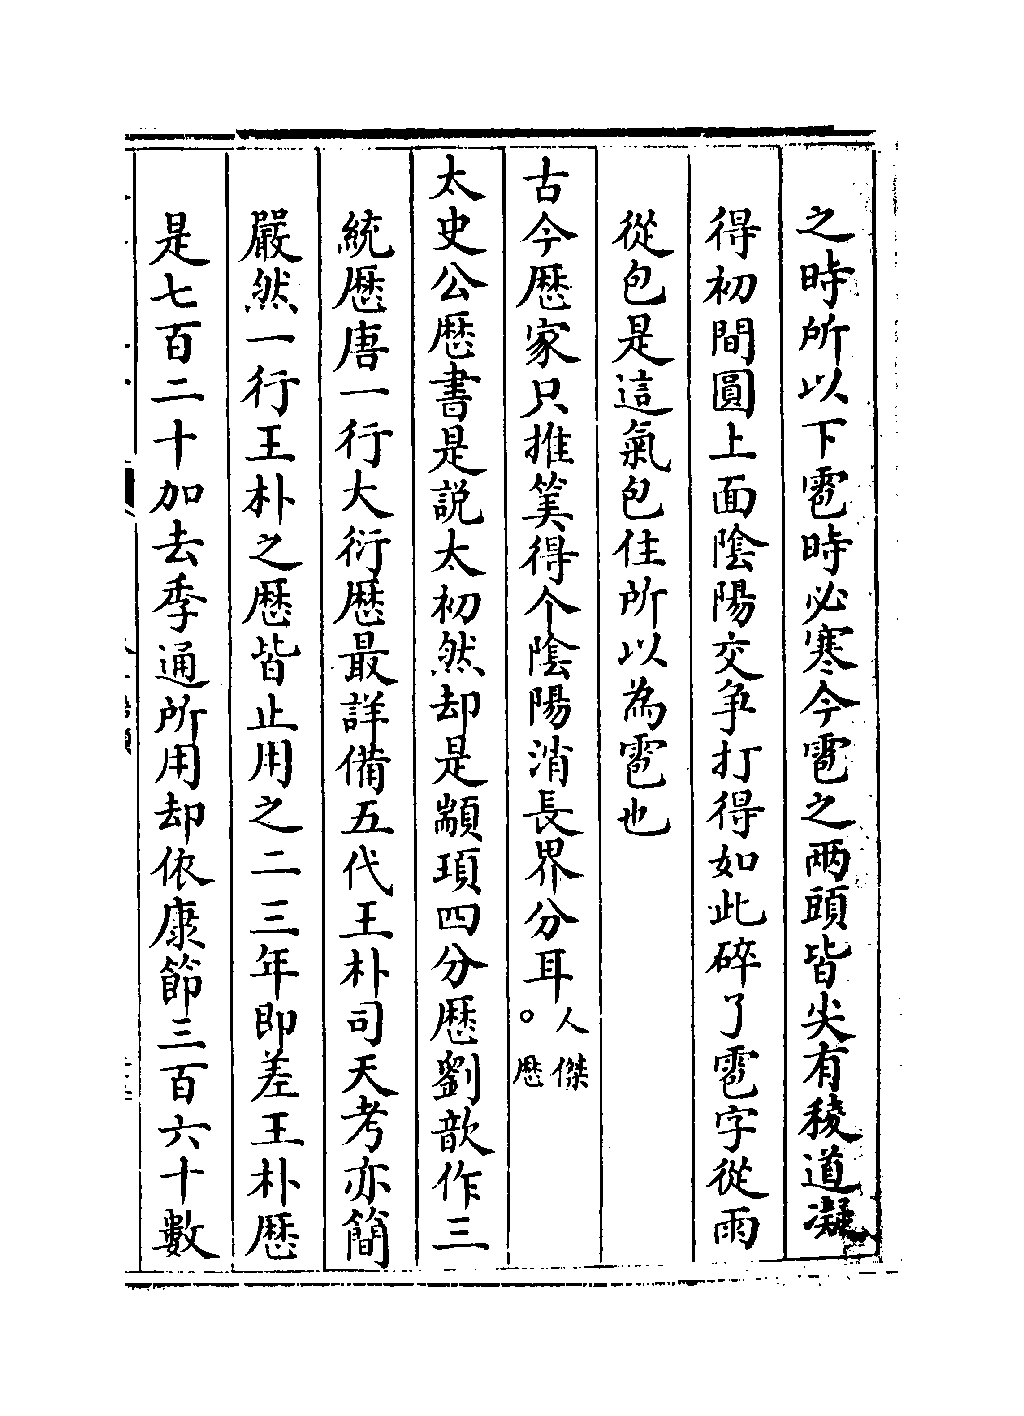 之時所以下雹時必寒今雹之兩頭皆尖有稜道凝
得初間圓上面陰陽交爭打得如此碎了雹字從雨
從包是這氣包住所以為雹也
古今厯家只推筭得个陰陽消長界分耳人傑。厯
太史公厯書是説太初然却是顓頊四分厯劉歆作三
統厯唐一行大衍厯最詳備五代王朴司天考亦簡
嚴然一行王朴之厯皆止用之二三年即差王朴厯
是七百二十加去季通所用却依康節三百六十數